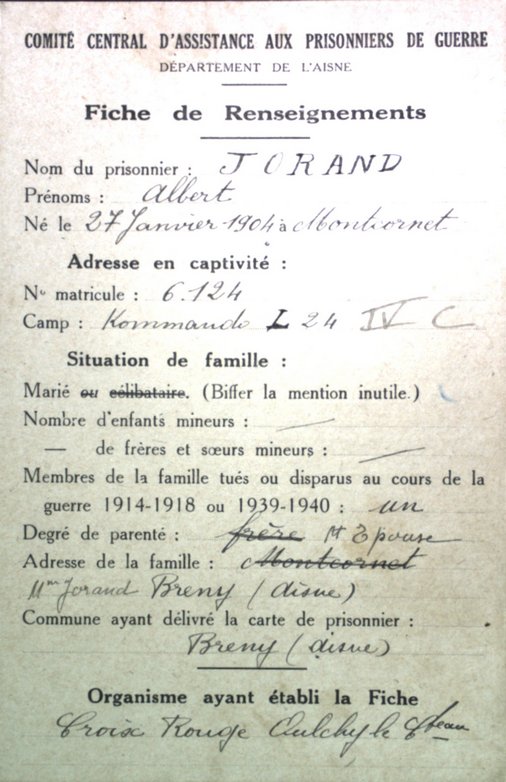 COMITÉ CENTRAL D'ASSISTANCE AUX PRISONNIERS DE GUERRE
DÉPARTEMENT DE L'AISNE
Fiche de Renseignements
Nom du prisonnier : JORAND
Prénoms : Albert
Né le 27 Janvier 1904 à Montcornet
Adresse en captivité :
N° matricule : 6.124
Camp : Kommando L 24 IV C
Situation de famille :
Marié ou célibataire. (Biffer la mention inutile.)
Nombre d'enfants mineurs : —
— de frères et sœurs mineurs : —
Membres de la famille tués ou disparus au cours de la
guerre 1914-1918 ou 1939-1940 : un
Degré de parenté : frère Epouse
Adresse de la famille : Montcornet
Mme Jorand Breny (Aisne)
Commune ayant délivré la carte de prisonnier :
Breny (Aisne)
Organisme ayant établi la Fiche
Croix Rouge Oulchy le Cteau